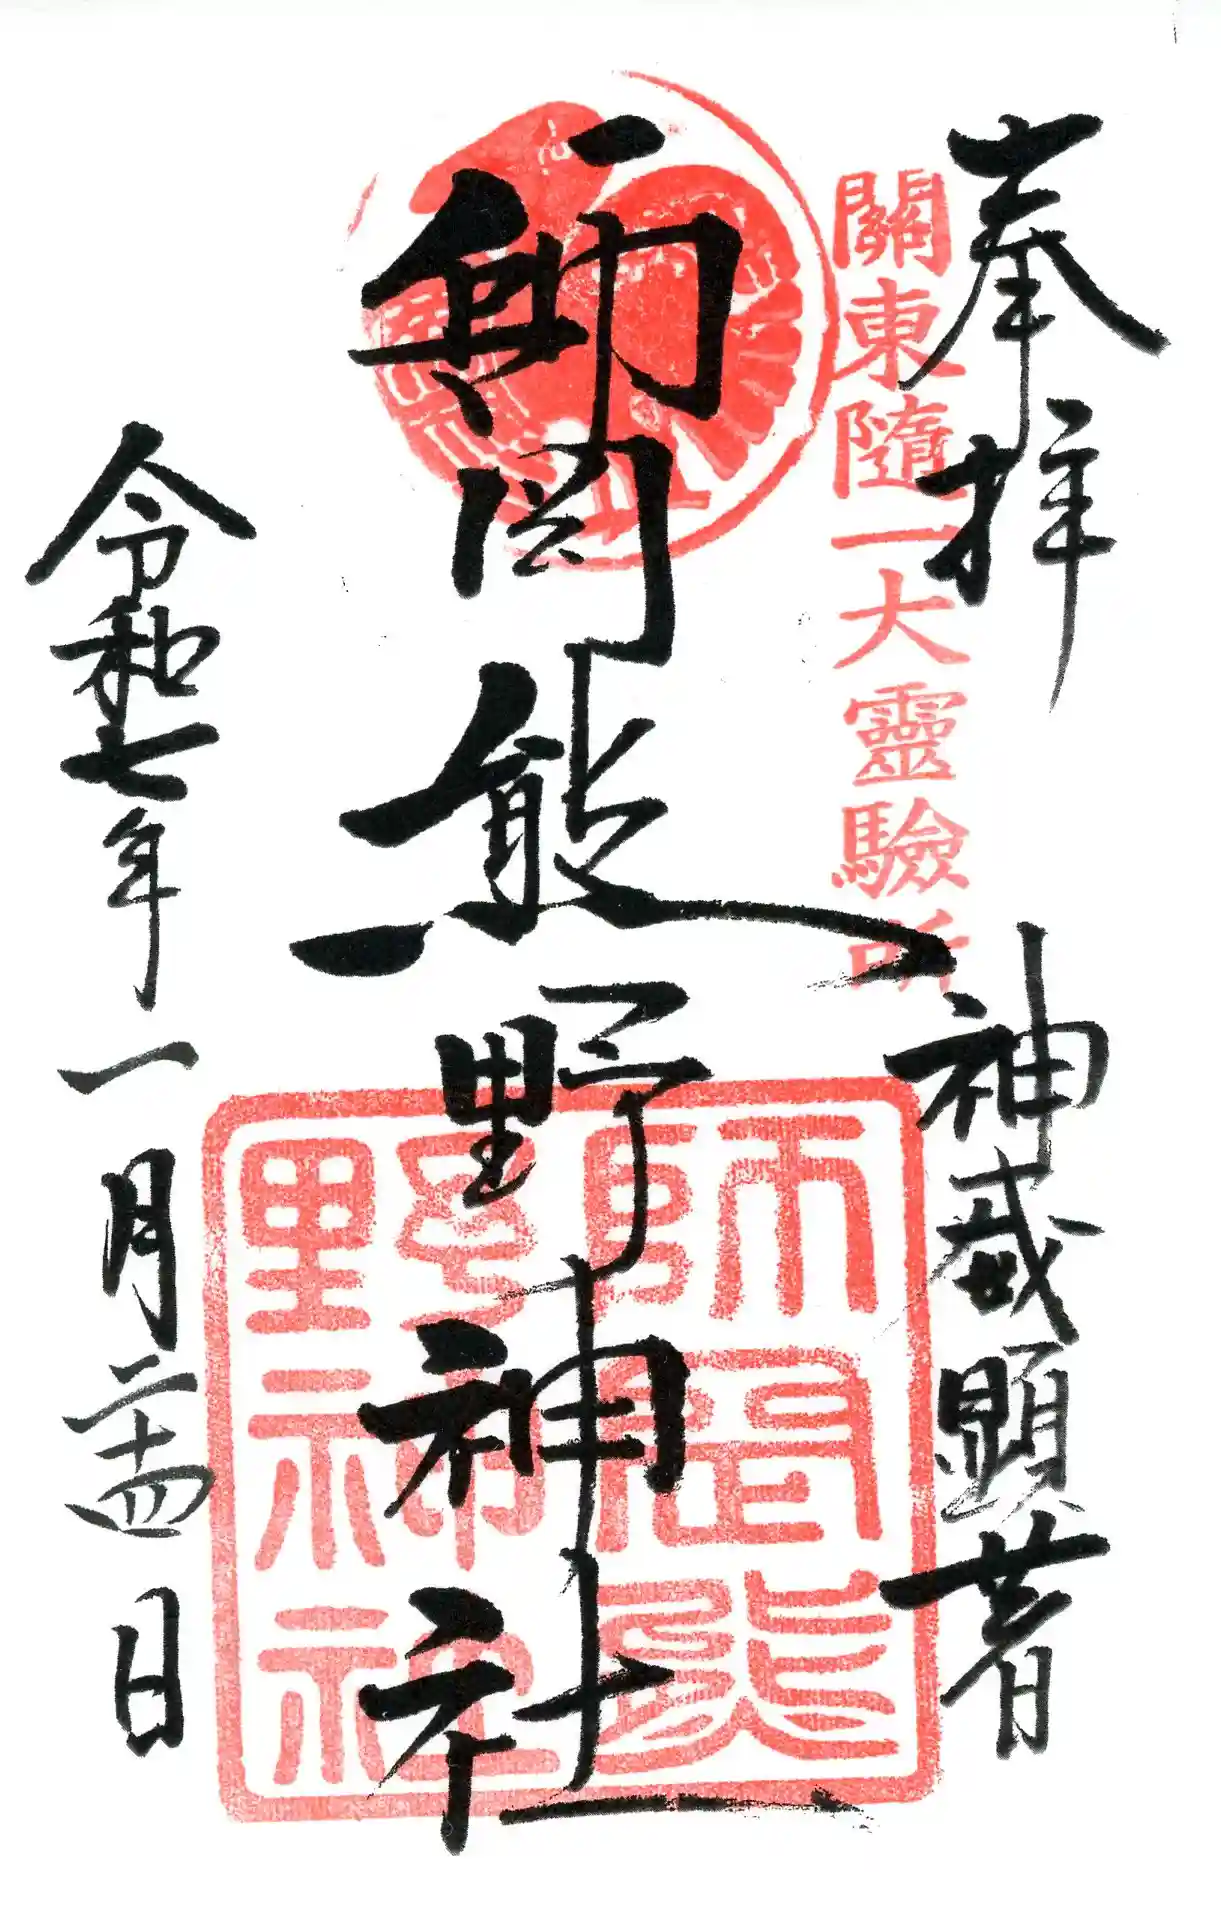 奉拝
神威顕著
關東随一大靈驗所
師岡熊野神社
師岡熊
野神社
令和七年一月二十四日